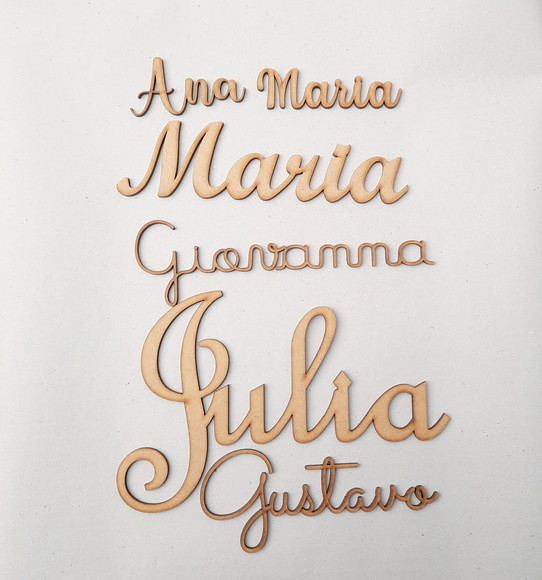 Ana Maria
Maria
Giovanna
Julia
Gustavo